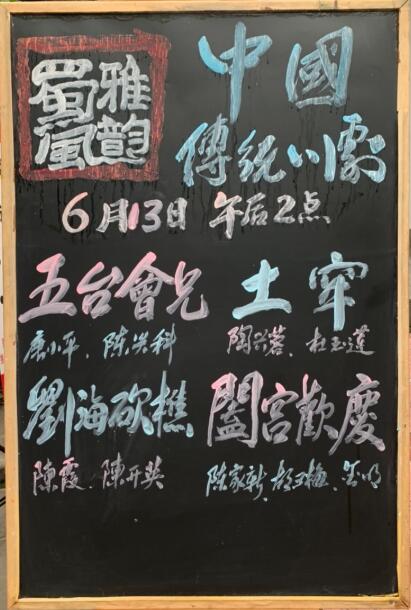 蜀風
雅韵
中國
傳統川劇
6月13日 午后2点
五台會兄 土牢
小平、陈科 陶兴蓉、杜玉莲
劉海砍樵 闔宫歡慶
陳霞、陳开英 陈家新、梅、